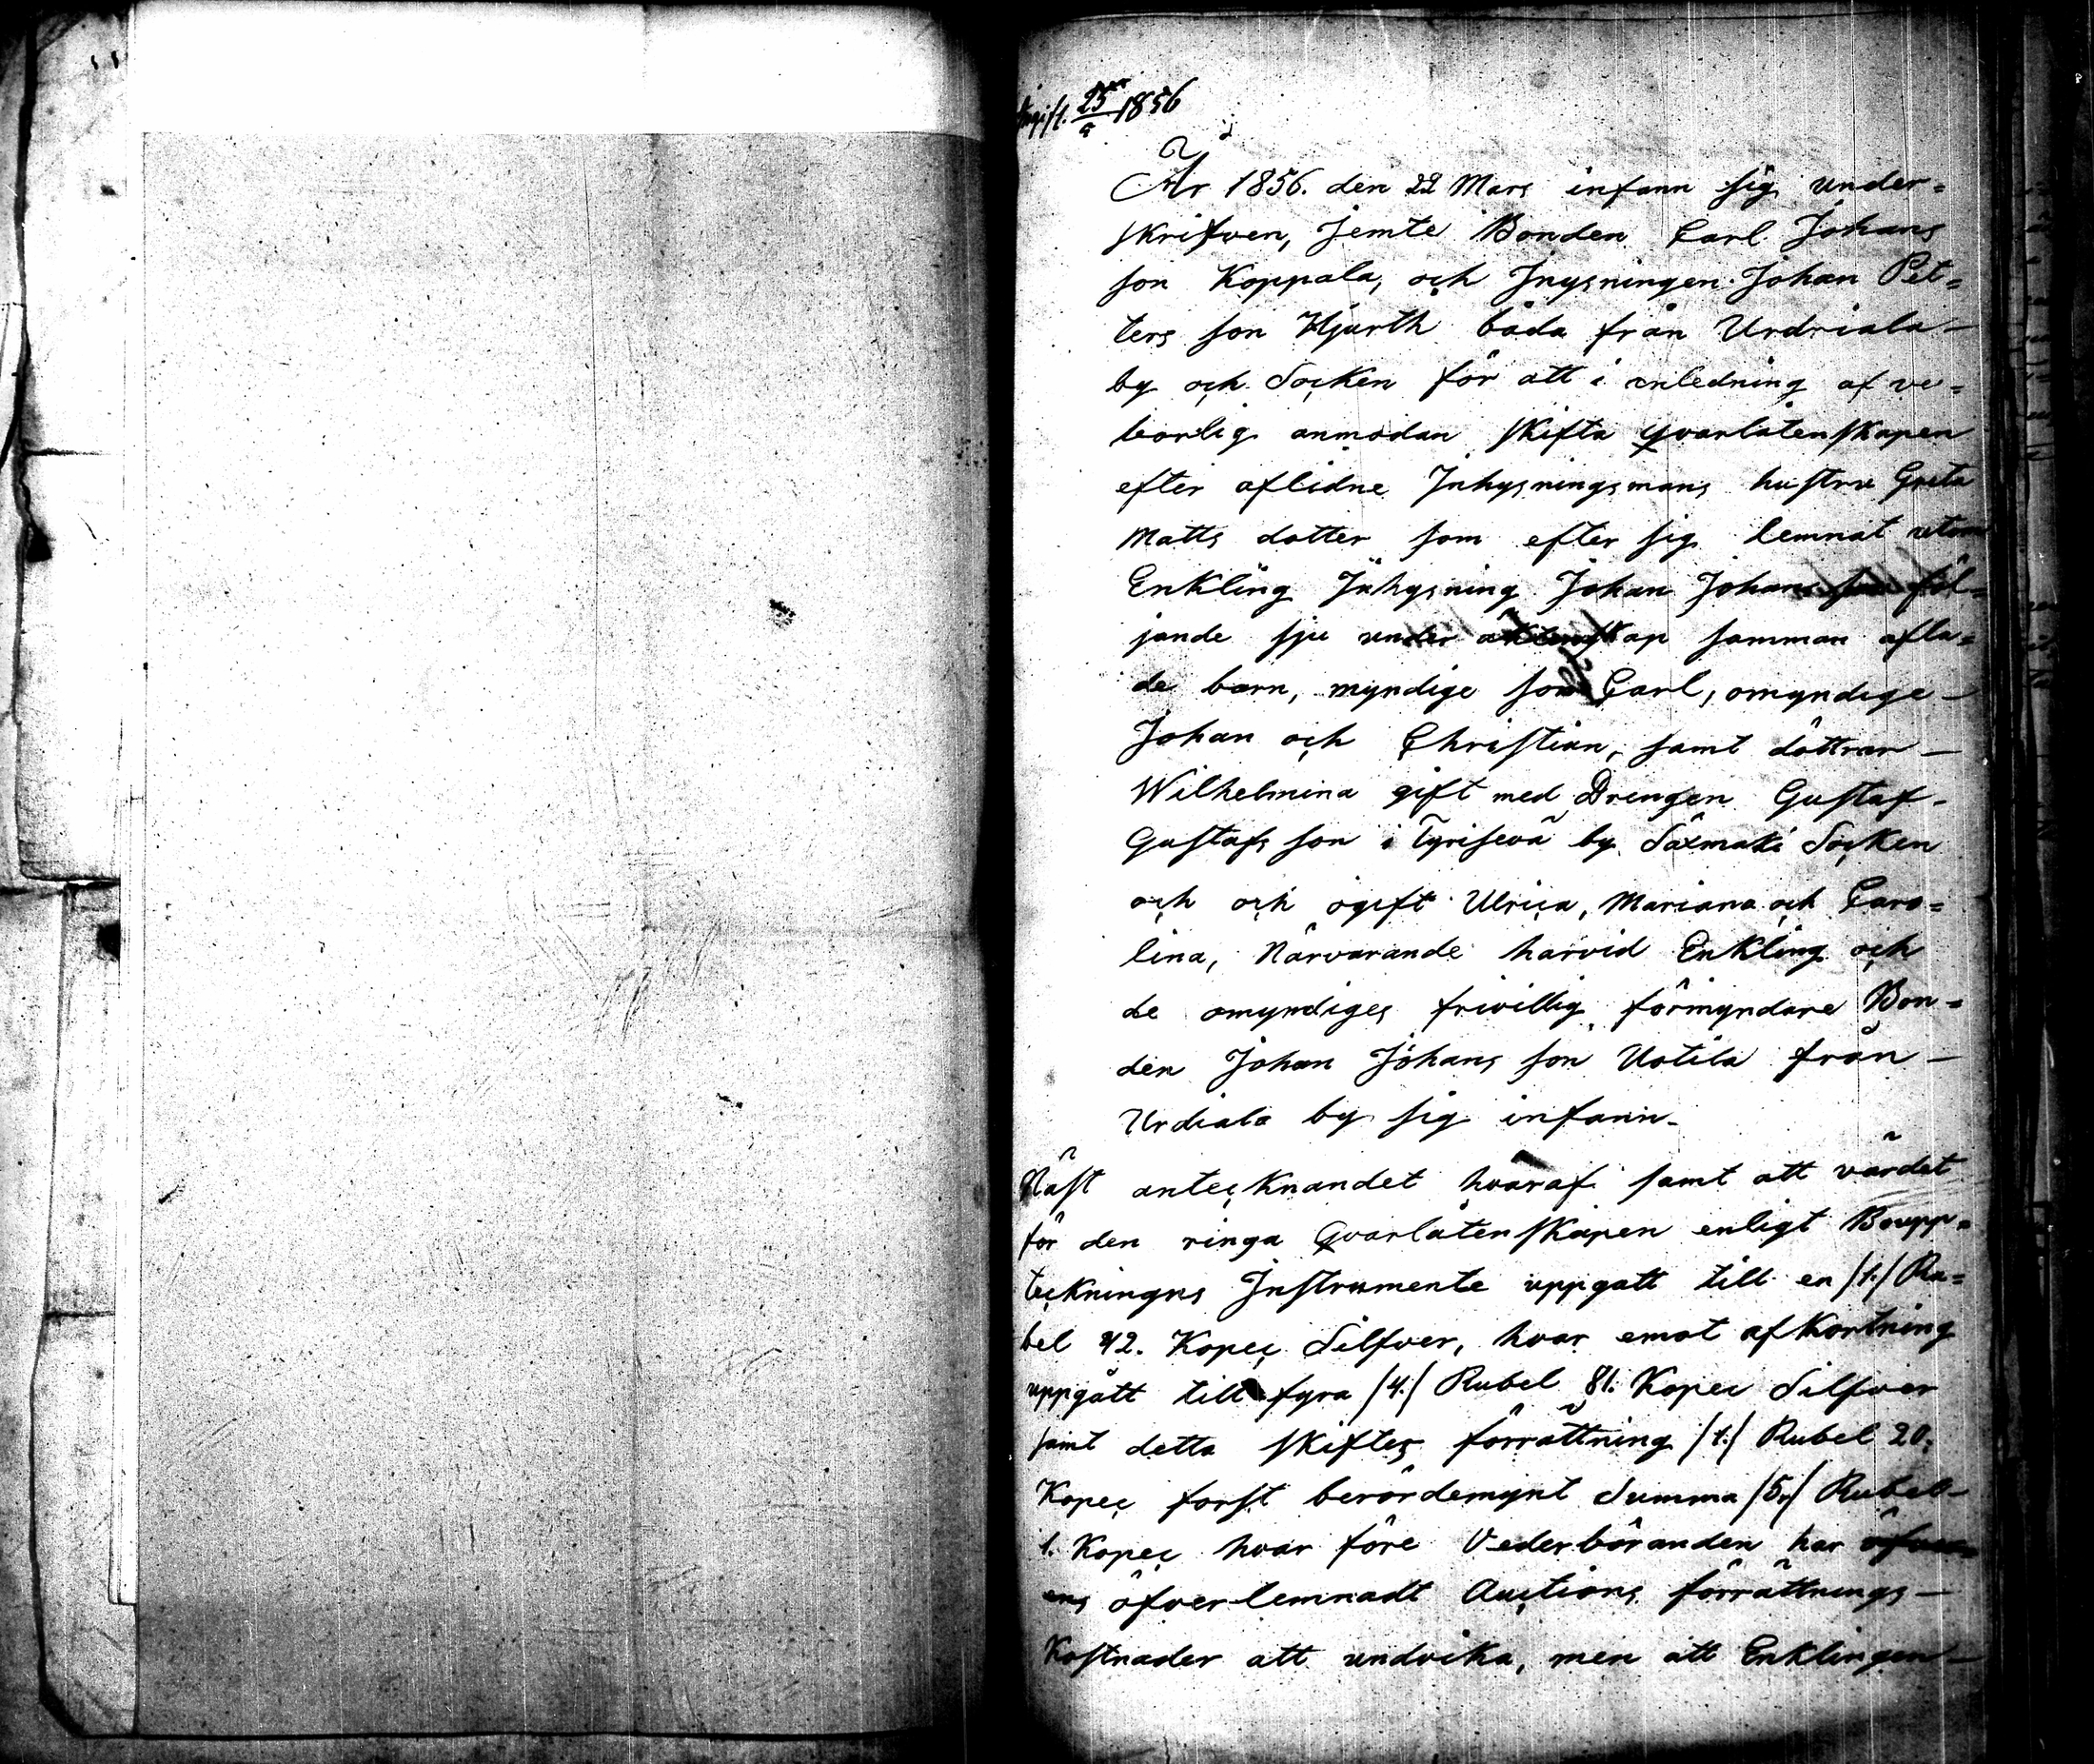 Ingift. 25/9 1856
År 1856. den 22 Mars infann sig under=
skrifven, jemte Bonden Carl Johans
son Koppala, och Inysningen Johan Pet=
ters son Hjurth båda från Urdriala
by och Socken för att i anledning af ve=
borlig anmodan skifta qvarlåtenskapen
efter aflidne Inhysningsmans hustru Greta
Matts dotter som efter sig lemnat
Enkling Inhysning Johan Johans son föl=
jande sju under äktenskap samman afla=
de barn, myndige son Carl, omyndige
Johan och Christian, samt döttrar
Wilhelmina gift med Drengen Gustaf
Gustafs son i Tyrisevä by Säxmäki Socken
och och ogift Ulrica, Mariana och Caro=
lina, Närvarande härvid Enkling och
de omyndiges frivillig förmyndare Bon=
den Johan Johans son Uotila från
Urdiala by sig infann.
Näst antecknandet hvaraf samt att värdet
för den ringa Qvarlåtenskapen enligt Boupp=
teckningns Instrumente uppgått till en /1./ Ru=
bel 42. Kopec Silfver, hvar emot afkortning
uppgått till fyra /4./ Rubel 81. Kopec Silfver
samt detta skiftes förrättning /1./ Rubel 20.
Kopec först berördemynt Summa /5./ Rubel
1. Kopec hvar före Vederböranden har
ens öfverlemnadt Auctions förrättnings
Kostnader att undvika, men att Enklingen